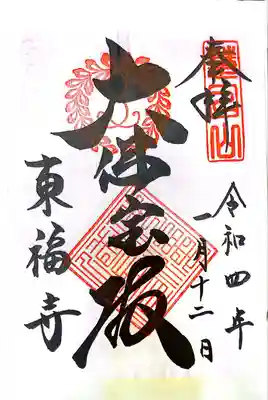 奉拝
令和四年
一月十二日
大仏宝殿
東福寺